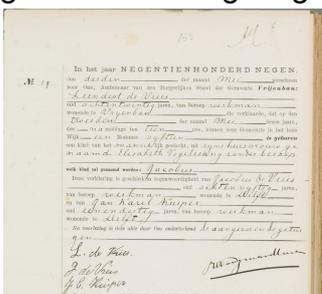 In het jaar NEGENTIENHONDERD NEGEN,
den derden der maand Mei verscheen
voor Ons, Ambtenaar van den Burgerlijken Stand der Gemeente Vrijenban:
Leendert de Vries
oud achtentwintig jaren, van beroep werkman
wonende te Vrijenban die verklaarde, dat op den
tweeden der maand Mei dezes jaars,
des middags ten tien ure, binnen deze Gemeente in het huis
Wijk een Nummer vijftien is geboren
een kind van het geslacht, uit zijne huisvrouw ge
naamd Elisabeth Vogelezang zonder beroep
welk kind zal genaamd worden: Jacobus
Deze verklaring is geschied in tegenwoordigheid van Jacobus de Vries
oud achtenvijftig jaren,
van beroep werkman wonende te Delft
en van Jan Karel Kuiper
oud jaren, van beroep werkman
wonende te Delft
Na voorlezing is deze akte door Ons onderteekend de aangever en de getui
gen.
L. de Vries.
J. de Vries
J. C. Kuiper